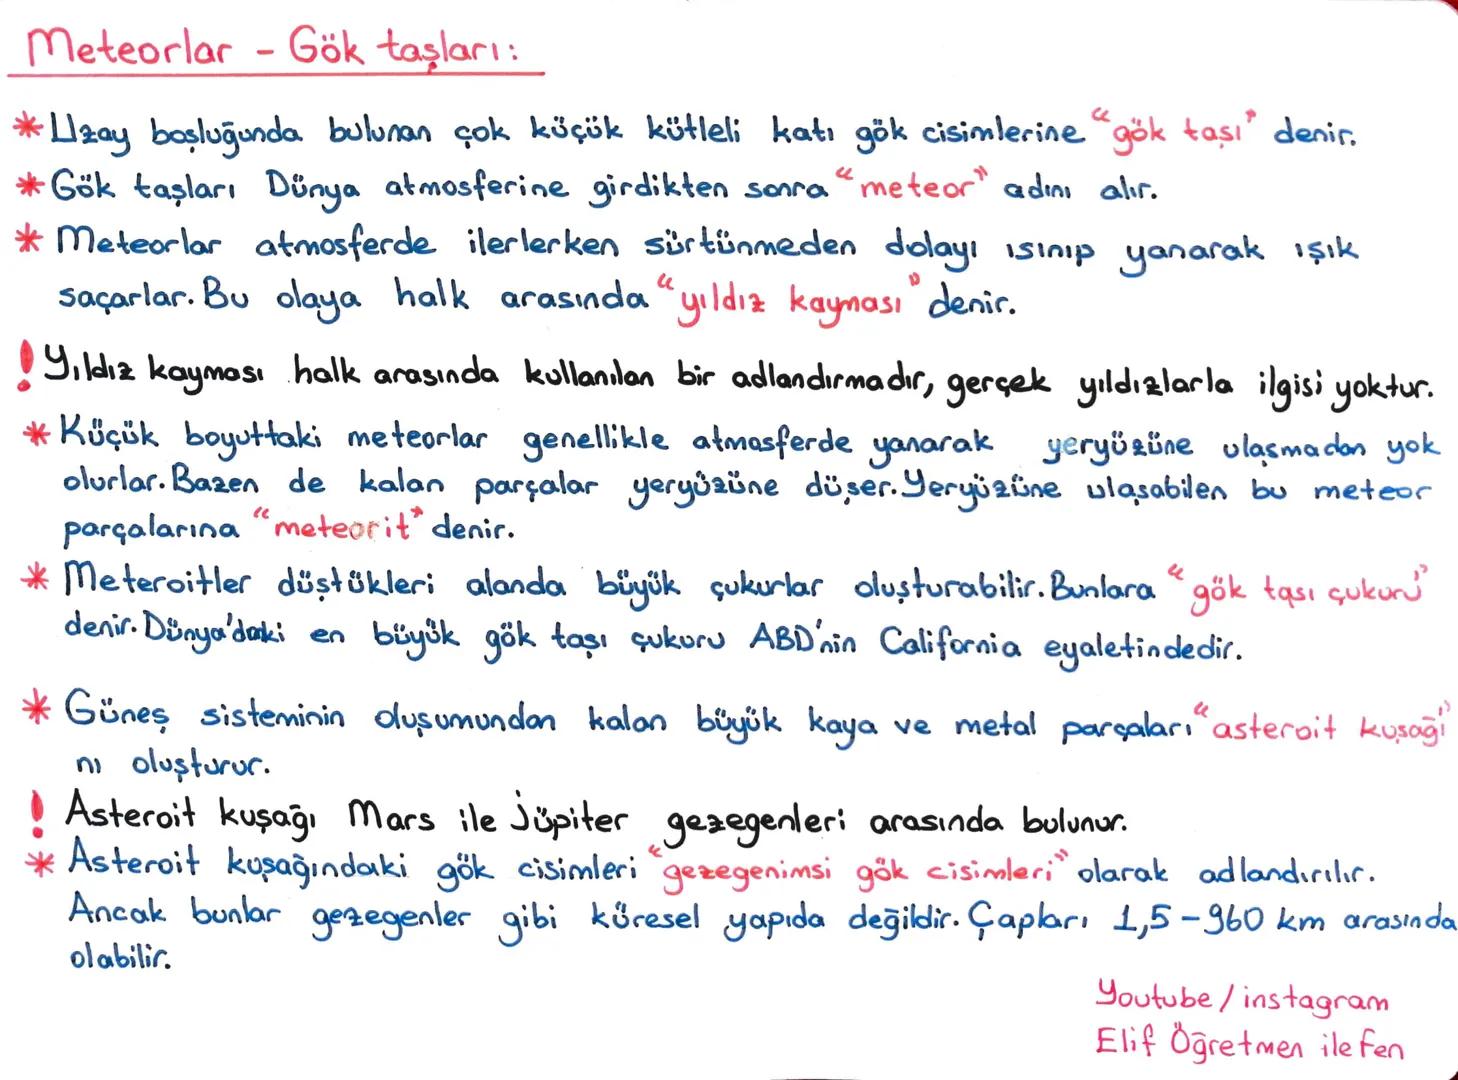 Meteorlar - Gök taşları:
* Uzay boşluğunda bulunan çok küçük kütleli katı gök cisimlerine "gök taşı" denir.
* Gök taşları Dünya atmosferine girdikten sonra "meteor" adını alır.
* Meteorlar atmosferde ilerlerken sürtünmeden dolayı ısınıp yanarak ışık
saçarlar. Bu olaya halk arasında "yıldız kayması" denir.
! Yıldız kayması halk arasında kullanılan bir adlandırmadır, gerçek yıldızlarla ilgisi yoktur.
* Küçük boyuttaki meteorlar genellikle atmosferde yanarak yeryüzüne ulaşmadan yok
olurlar. Bazen de kalan parçalar yeryüzüne düşer. Yeryüzüne ulaşabilen bu meteor
parçalarına "meteorit" denir.
* Meteroitler düştükleri alanda büyük çukurlar oluşturabilir. Bunlara "gök taşı çukuru"
denir. Dünya'daki en büyük gök taşı çukuru ABD'nin California eyaletindedir.
* Güneş sisteminin oluşumundan kalan büyük kaya ve metal parçaları "asteroit kuşağı"
nı oluşturur.
! Asteroit kuşağı Mars ile Jüpiter gezegenleri arasında bulunur.
* Asteroit kuşağındaki gök cisimleri "gezegenimsi gök cisimleri" olarak adlandırılır.
Ancak bunlar gezegenler gibi küresel yapıda değildir. Çapları 1,5 - 960 km arasında
olabilir.
Youtube / instagram
Elif Öğretmen ile Fen